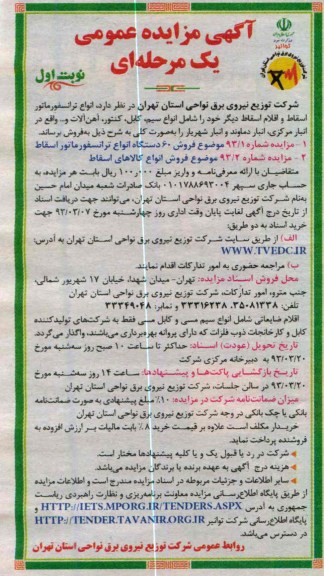 آگهی مزایده عمومی
یک مرحله‌ای
نوبت اول
شرکت توزیع نیروی برق نواحی استان تهران در نظر دارد، انواع ترانسفورماتور
اسقاط و اقلام اسقاط دیگر خود را شامل انواع سیم، کابل، کنتور، آهن‌آلات و... واقع در
انبار مرکزی، انبار دماوند و انبار شهریار را به‌صورت کلی به شرح ذیل به‌فروش برساند.
۱ - مزایده شماره ۹۳/۱ موضوع فروش ۶۰ دستگاه انواع ترانسفورماتور اسقاط
۲ - مزایده شماره ۹۳/۲ موضوع فروش انواع کالاهای اسقاط
متقاضیان با ارائه معرفی‌نامه و واریز مبلغ ۱۰۰,۰۰۰ ریال بابت هر مزایده، به
حساب جاری سپهر ۰۱۰۱۷۸۸۶۹۳۰۰۴ بانک صادرات شعبه میدان امام حسین
به‌نام شرکت توزیع نیروی برق نواحی استان تهران، می‌توانند جهت دریافت اسناد
از تاریخ درج آگهی لغایت پایان وقت اداری روز چهارشنبه مورخ ۹۳/۰۳/۰۷ جهت
خرید اسناد به دو طریق:
الف) از طریق سایت شرکت توزیع نیروی برق نواحی استان تهران به آدرس:
WWW.TVEDC.IR
ب) مراجعه حضوری به امور تدارکات اقدام نمایند.
محل فروش اسناد مزایده: تهران- میدان شهدا، خیابان ۱۷ شهریور شمالی،
جنب مترو، امور تدارکات، شرکت توزیع نیروی برق نواحی استان تهران
تلفن: ۳۵۰۸۱۳۳۸، ۳۳۳۱۶۲۳۸ و نمابر: ۳۳۳۴۹۰۴۸
اقلام ضایعاتی شامل انواع سیم مسی و کابل مسی فقط به شرکت‌های تولیدکننده
کابل و کارخانجات ذوب فلزات که دارای پروانه بهره‌برداری می‌باشند، واگذار می‌گردد.
تاریخ تحویل (عودت) اسناد: حداکثر تا ساعت ۱۰ صبح روز سه‌شنبه مورخ
۹۳/۰۳/۲۰ به دبیرخانه مرکزی شرکت
تاریخ بازگشایی پاکت‌ها و پیشنهادها: ساعت ۱۴ روز سه‌شنبه مورخ
۹۳/۰۳/۲۰ در سالن جلسات، شرکت توزیع نیروی برق نواحی استان تهران
میزان ضمانت‌نامه شرکت در مزایده: ۱۰٪ مبلغ پیشنهادی به صورت ضمانت‌نامه
بانکی یا چک بانکی در وجه شرکت توزیع نیروی برق نواحی استان تهران
خریدار مکلف است علاوه بر قیمت خرید ۸٪ بابت مالیات بر ارزش افزوده به
فروشنده پرداخت نماید.
شرکت در رد یا قبول یک و یا کلیه پیشنهادها مختار است.
هزینه درج آگهی به عهده برنده یا برندگان مزایده می‌باشد.
سایر اطلاعات و جزئیات مربوطه در اسناد مزایده مندرج است و اطلاعات مزایده
از طریق پایگاه اطلاع‌رسانی مزایده معاونت برنامه‌ریزی و نظارت راهبردی ریاست
جمهوری به آدرس HTTP://IETS.MPORG.IR/TENDERS.ASPX و
پایگاه اطلاع‌رسانی شرکت توانیر HTTP://TENDER.TAVANIR.ORG.IR
در دسترس می‌باشد.
روابط عمومی شرکت توزیع نیروی برق نواحی استان تهران